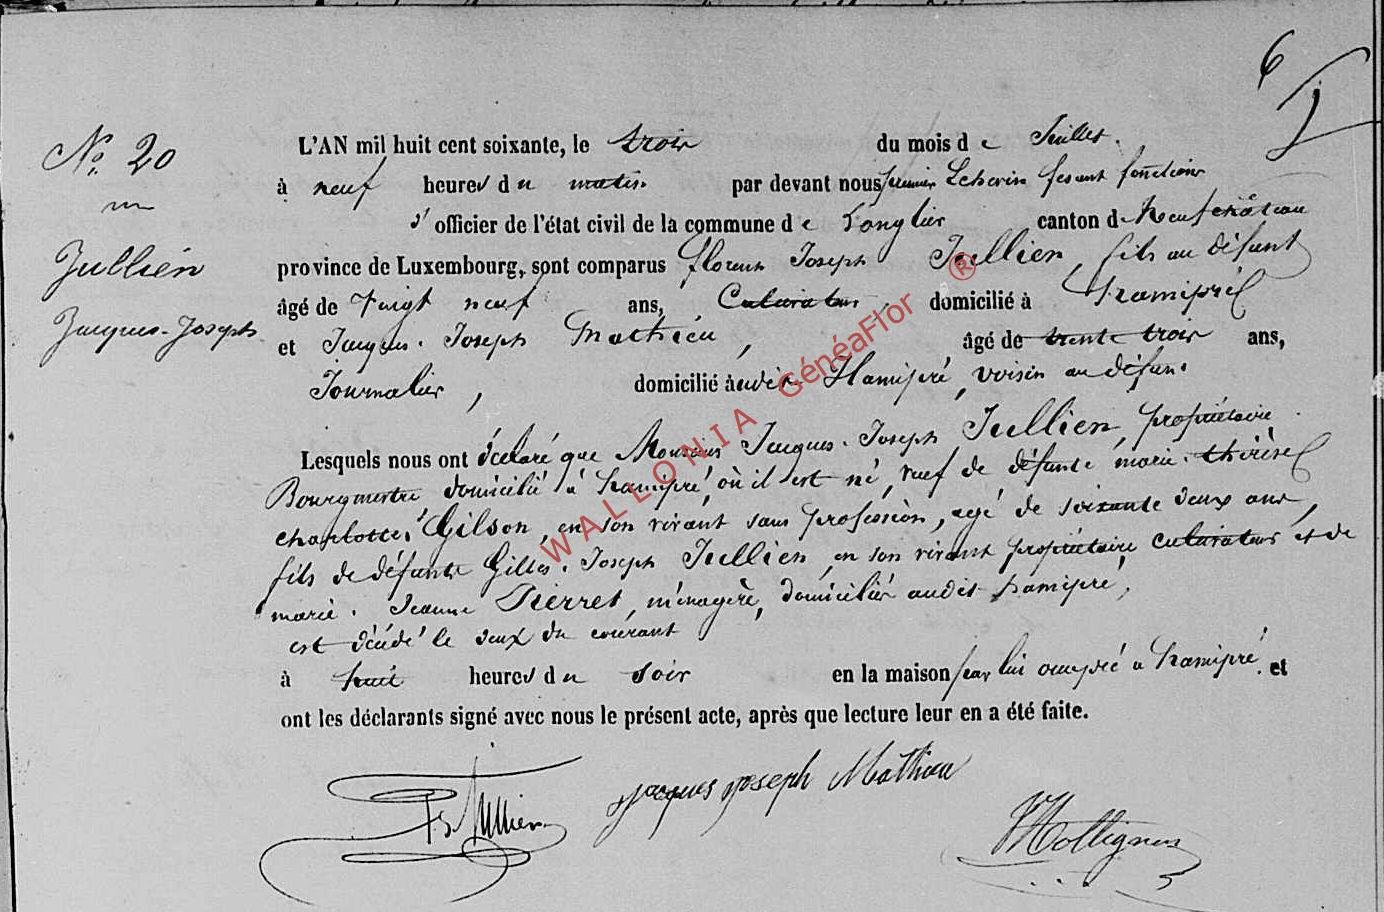 6
N°. 20
L'AN mil huit cent soixante, le trois du mois de Juillet.
à neuf heures du matin par devant nous premier Echevin fesant fonctions
d'officier de l'état civil de la commune de Longlier canton de Neufchâteau
Jullien
province de Luxembourg, sont comparus florent Joseph Jullien, fils au défunt
âgé de vingt neuf ans, Cultivateur, domicilié à hamipré
Jacques-Joseph.
et Jacques. Joseph Mathieu, âgé de trente trois ans,
Journalier, domicilié audit Hamipré, voisin au défunt
Lesquels nous ont déclaré que Monsieur Jacques. Joseph Jullien, propriétaire
Bourgmestre domicilié à hamipré, où il est né, veuf de défunte marie. thérèse
charlotte. Gilson, en son vivant sans profession, agé de soixante deux ans,
fils de défunts Gilles. Joseph Jullien, en son vivant propriétaire cultivateur et de
marie. Jeanne Pierret, ménagère, domiciliés audit hamipré,
est décédé le deux du courant
à huit heures du soir en la maison par lui occupée à hamipré. et
ont les déclarants signé avec nous le présent acte, après que lecture leur en a été faite.
Jullien
jacques joseph Mathieu
Collignon
WALLONIA GénéaFlor ®